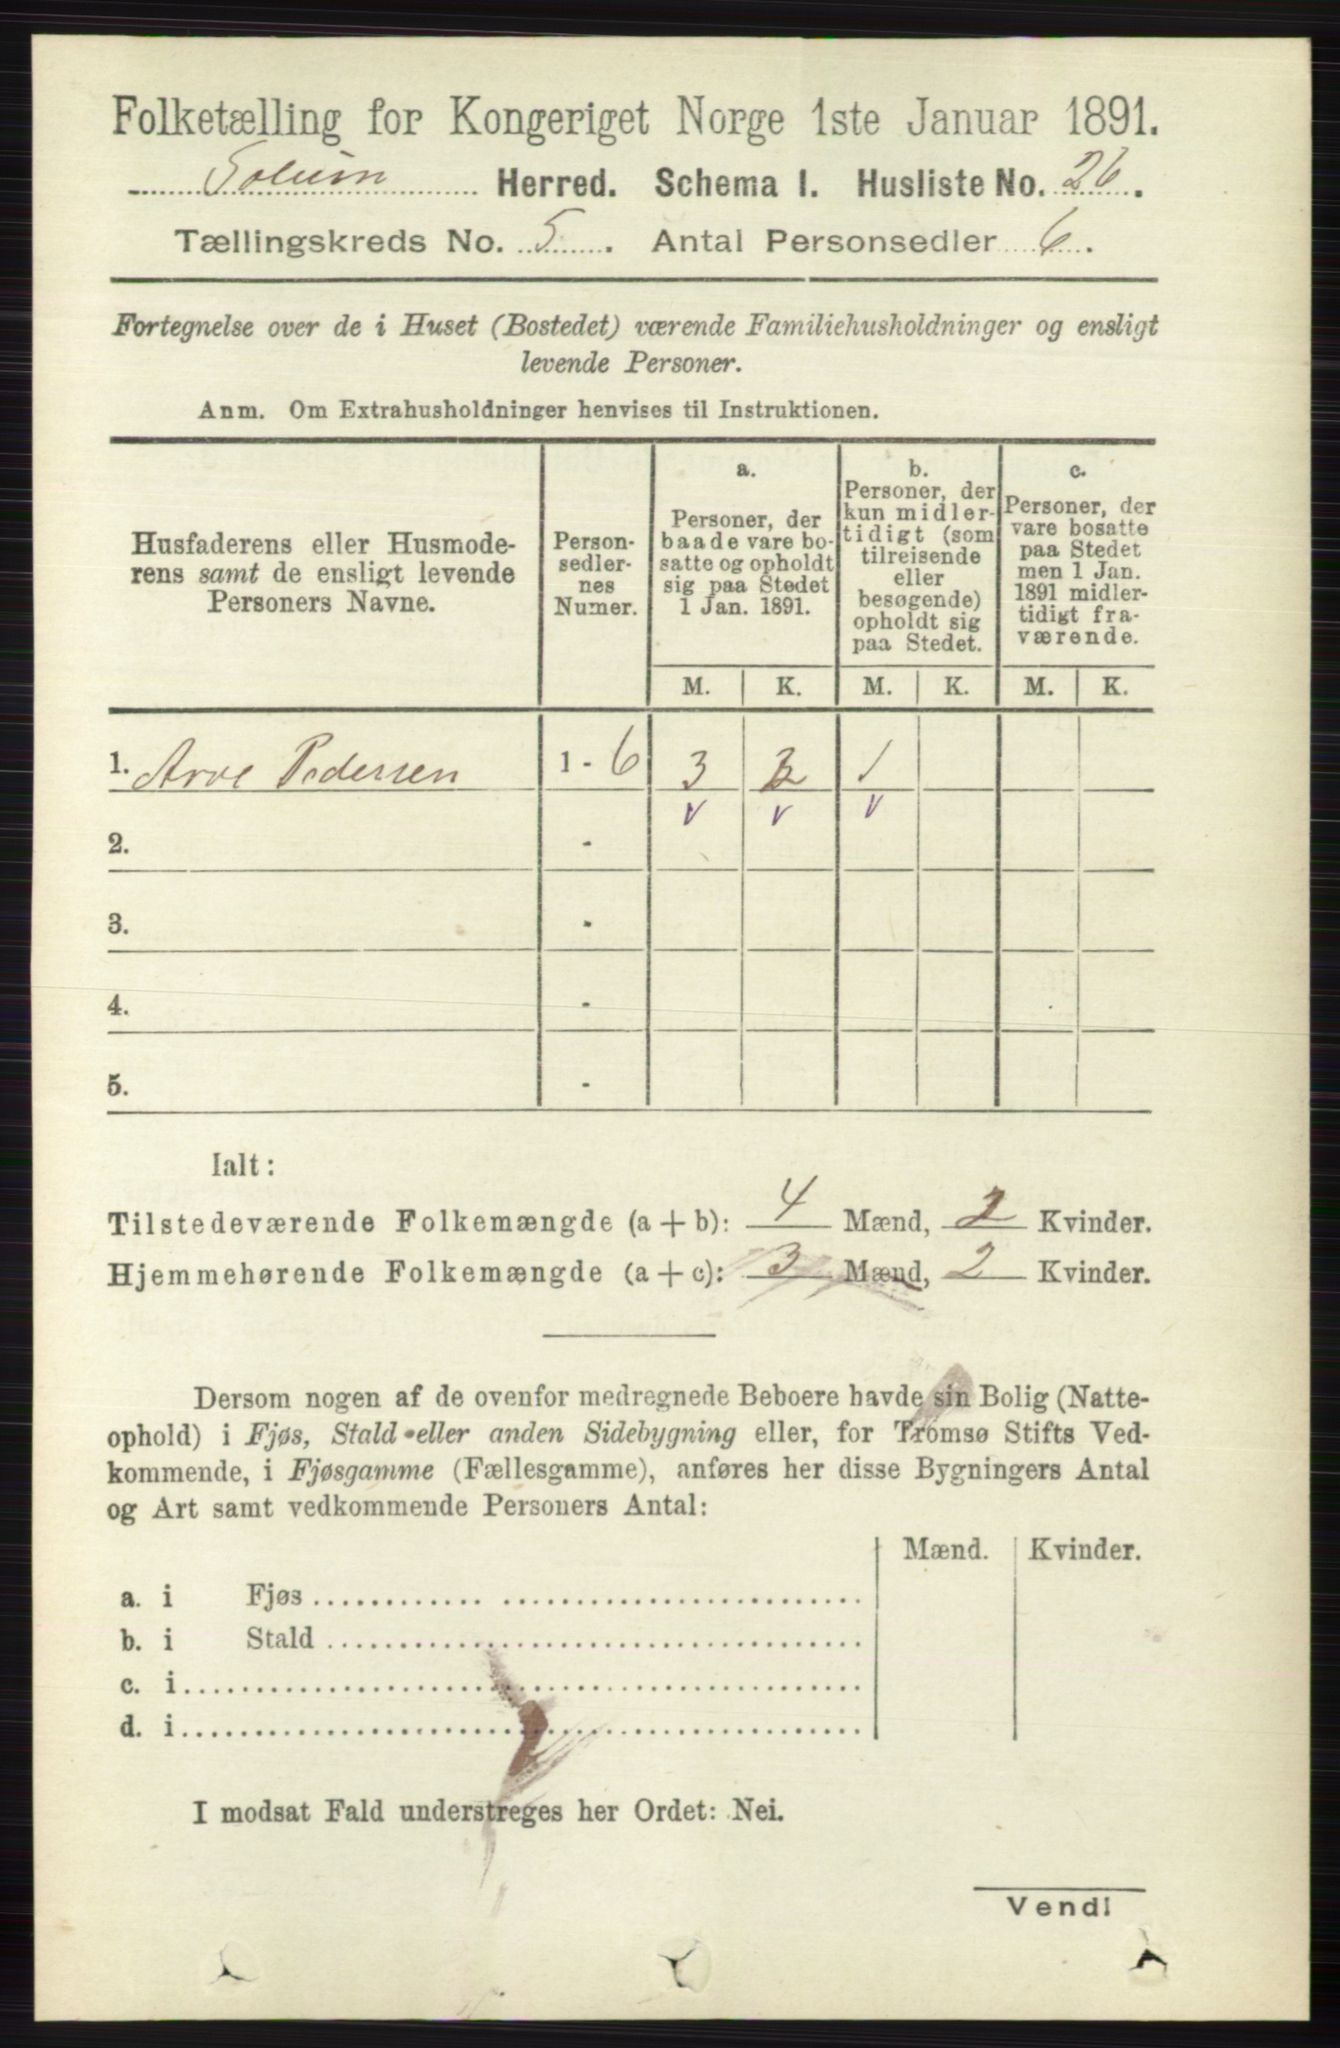 Folketælling for Kongeriget Norge 1ste Januar 1891.
Solum Herred. Schema I. Husliste No. 26.
Tællingskreds No. 5. Antal Personsedler 6.
Fortegnelse over de i Huset (Bostedet) værende Familiehusholdninger og ensligt
levende Personer.
Anm. Om Extrahusholdninger henvises til Instruktionen.
Husfaderens eller Husmode-
rens samt de ensligt levende
Personers Navne.
Person-
sedler-
nes
Numer.
a.
Personer, der
baade vare bo-
satte og opholdt
sig paa Stedet
1 Jan. 1891.
b.
Personer, der
kun midler-
tidigt (som
tilreisende
eller
besøgende)
opholdt sig
paa Stedet.
c.
Personer, der
vare bosatte
paa Stedet
men 1 Jan.
1891 midler-
tidigt fra-
værende.
M. K. M. K. M. K.
1. Arve Pedersen 1 - 6 3 2 1
v v v
2. -
3. -
4. -
5. -
Ialt:
Tilstedeværende Folkemængde (a + b): 4 Mænd, 2 Kvinder.
Hjemmehørende Folkemængde (a + c): 3 Mænd, 2 Kvinder.
Dersom nogen af de ovenfor medregnede Beboere havde sin Bolig (Natte-
ophold) i Fjøs, Stald eller anden Sidebygning eller, for Tromsø Stifts Ved-
kommende, i Fjøsgamme (Fællesgamme), anføres her disse Bygningers Antal
og Art samt vedkommende Personers Antal:
Mænd. Kvinder.
a. i Fjøs
b. i Stald
c. i
d. i
I modsat Fald understreges her Ordet: Nei.
Vend!